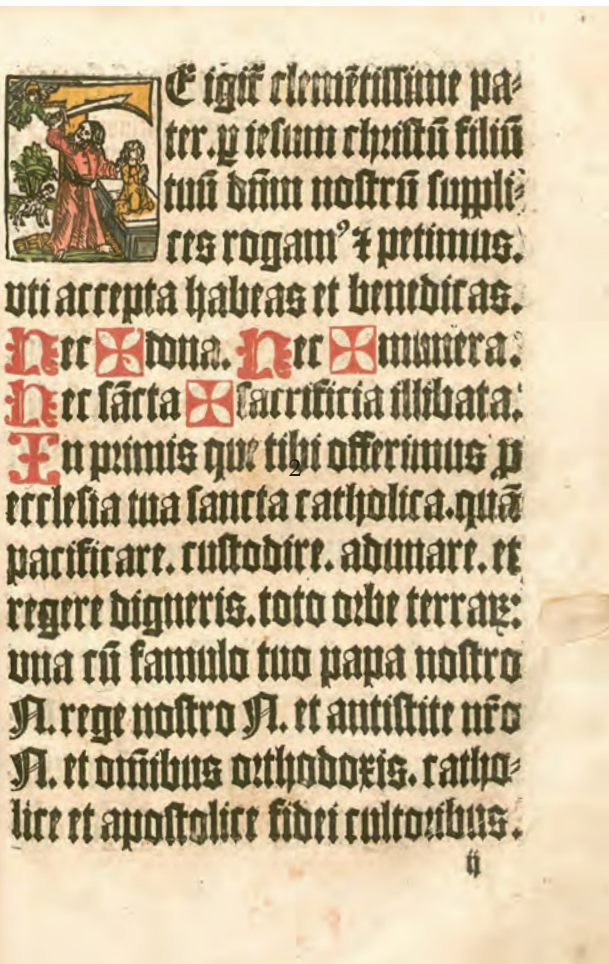 E igit̃ clemẽtissime pa⸗
ter. ꝑ iesum christũ filiũ
tuũ dñm nostrũ suppli⸗
ces rogamꝰ ⁊ petimus.
vti accepta habeas et benedicas.
Nec ✠ dona. Nec ✠ munera.
Nec sãcta ✠ sacrificia illibata.
In primis que tibi offerimus ꝓ
ecclesia tua sancta catholica. quã
pacificare. custodire. adunare. et
regere digneris. toto orbe terraꝝ:
vna cũ famulo tuo papa nostro
N. rege nostro N. et antistite nr̃o
N. et om̃ibus orthodoxis. catho⸗
lice et apostolice fidei cultoribus.
ij
2